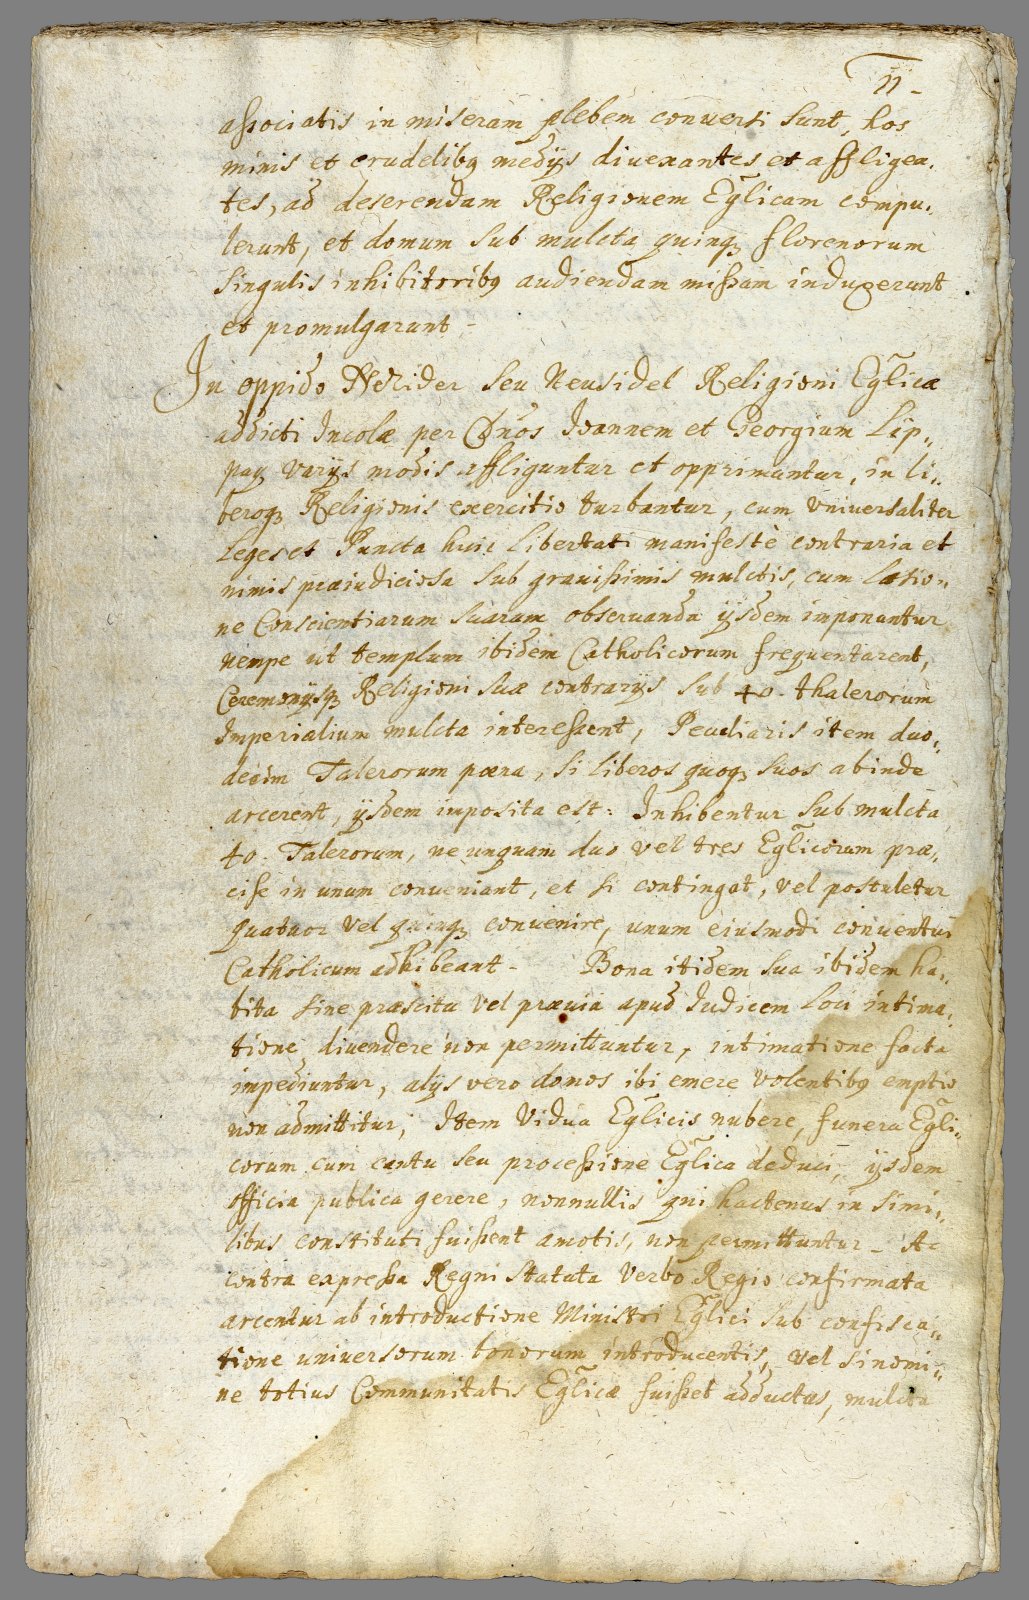 11-
associatis in miseram plebem conversi sunt, hos
minis et crudelibq medijs divexantes et affligen„
tes, ad deserendam Religionem Eglicam compu„
lerunt, et domum sub mulcta quinq florenorum
singulis inhibitoribq audiendam missam induxerunt
et promulgarunt -
In oppido Nezider seu Neusidel Religioni Eglicæ
addicti Incolæ per Dnos Ioannem et Georgium Lip„
pay varijs modis affliguntur et opprimuntur, in li„
beroq Religionis exercitio turbantur, cum Universaliter
Leges et Puncta huic libertati manifestè contraria et
nimis præiudiciosa sub gravissimis mulctis, cum læsio„
ne Conscientiarum suarum observanda ijsdem imponantur
nempe ut templum ibidem Catholicorum frequentarent,
Ceremonijsq Religioni suæ contrarijs sub 40. thalerorum
Imperialium mulcta interessent, Peculiaris item duo„
decim Talerorum pæna, si liberos quoq suos abinde
arcerent, ijsdem imposita est: Inhibentur sub mulcta
40. Talerorum, ne unquam duo vel tres Eglicorum præ„
cise in unum conveniant, et si contingat, vel postuletur
quatuor vel quinq convenire, unum eiusmodi conventui
Catholicum adhibeant - Bona itidem sua ibidem ha„
bita sine præscitu vel prævia apud Iudicem loci intima„
tione, divendere non permittuntur, intimatione facta
impediuntur, alijs vero domos ibi emere volentibq emptio
non admittitur, Item Vidua Eglicis nubere, funera Egli„
corum cum cantu seu processione Eglica deduci, ijsdem
officia publica gerere, nonnullis qui hactenus in simi„
libus constituti fuissent amotis, non permittuntur - Ac
contra expressa Regni statuta verbo Regio confirmata
arcentur ab introductione Ministri Eglici sub confisca„
tione universorum bonorum introducentis, vel si nomi„
ne totius Communitatis Eglicæ fuisset adductus, mulcta